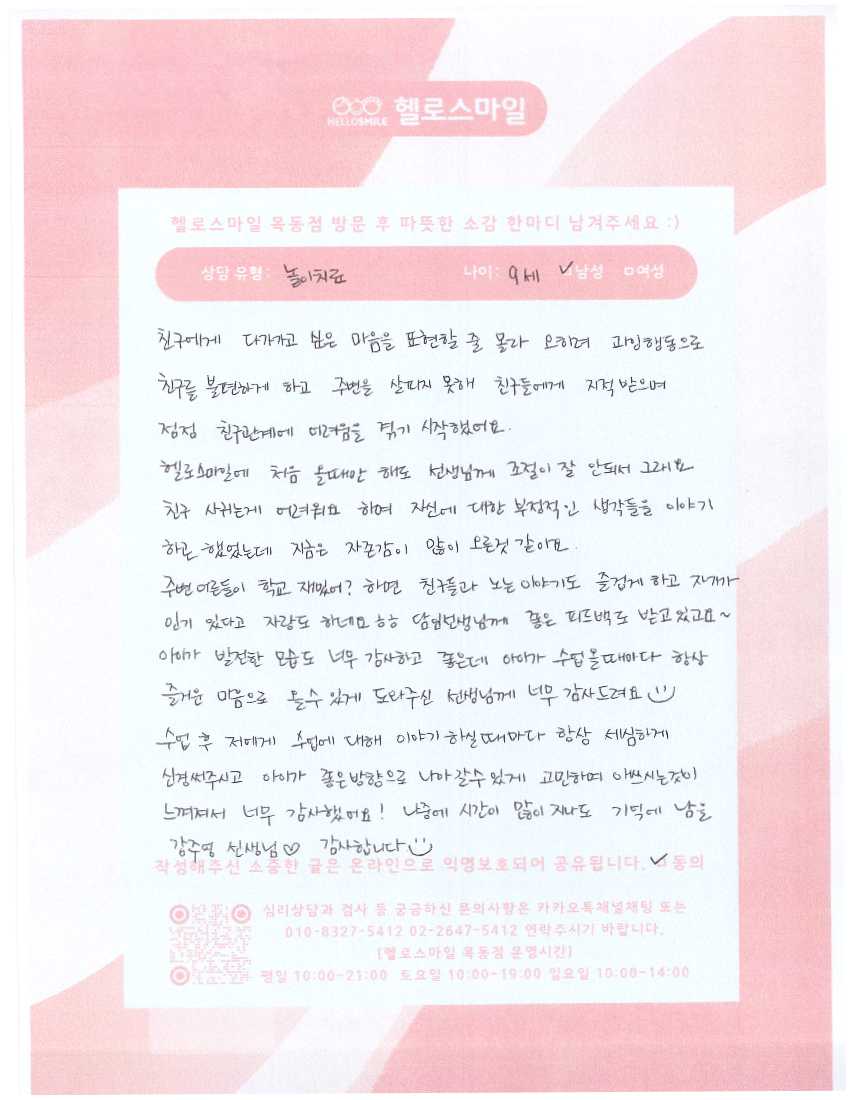 HELLOSMILE 헬로스마일
헬로스마일 목동점 방문 후 따뜻한 소감 한마디 남겨주세요 :)
상담 유형: 놀이치료 나이: 9세 ✓남성 □여성
친구에게 다가가고 싶은 마음을 표현할 줄 몰라 오히려 과잉행동으로
친구를 불편하게 하고 주변을 살피지 못해 친구들에게 지적 받으며
점점 친구관계에 어려움을 겪기 시작했어요.
헬로스마일에 처음 올때만 해도 선생님께 조절이 잘 안되서 그래요
친구 사귀는게 어려워요 하며 자신에 대한 부정적인 생각들을 이야기
하곤 했었는데 지금은 자존감이 많이 오른것 같아요.
주변어른들이 학교 재밌어? 하면 친구들과 노는 이야기도 즐겁게 하고 자기가
인기 있다고 자랑도 하네요 ㅎㅎ 담임선생님께 좋은 피드백도 받고있고요~
아이가 발전한 모습도 너무 감사하고 좋은데 아이가 수업올때마다 항상
즐거운 마음으로 올수있게 도와주신 선생님께 너무 감사드려요
수업 후 저에게 수업에 대해 이야기하실때마다 항상 세심하게
신경써주시고 아이가 좋은방향으로 나아갈수있게 고민하며 애쓰시는것이
느껴져서 너무 감사했어요! 나중에 시간이 많이 지나도 기억에 남을
강주영 선생님♡ 감사합니다
작성해주신 소중한 글은 온라인으로 익명보호되어 공유됩니다. ✓□동의
심리상담과 검사 등 궁금하신 문의사항은 카카오톡채널채팅 또는
010-8327-5412 02-2647-5412 연락주시기 바랍니다.
[헬로스마일 목동점 운영시간]
평일 10:00-21:00 토요일 10:00-19:00 일요일 10:00-14:00